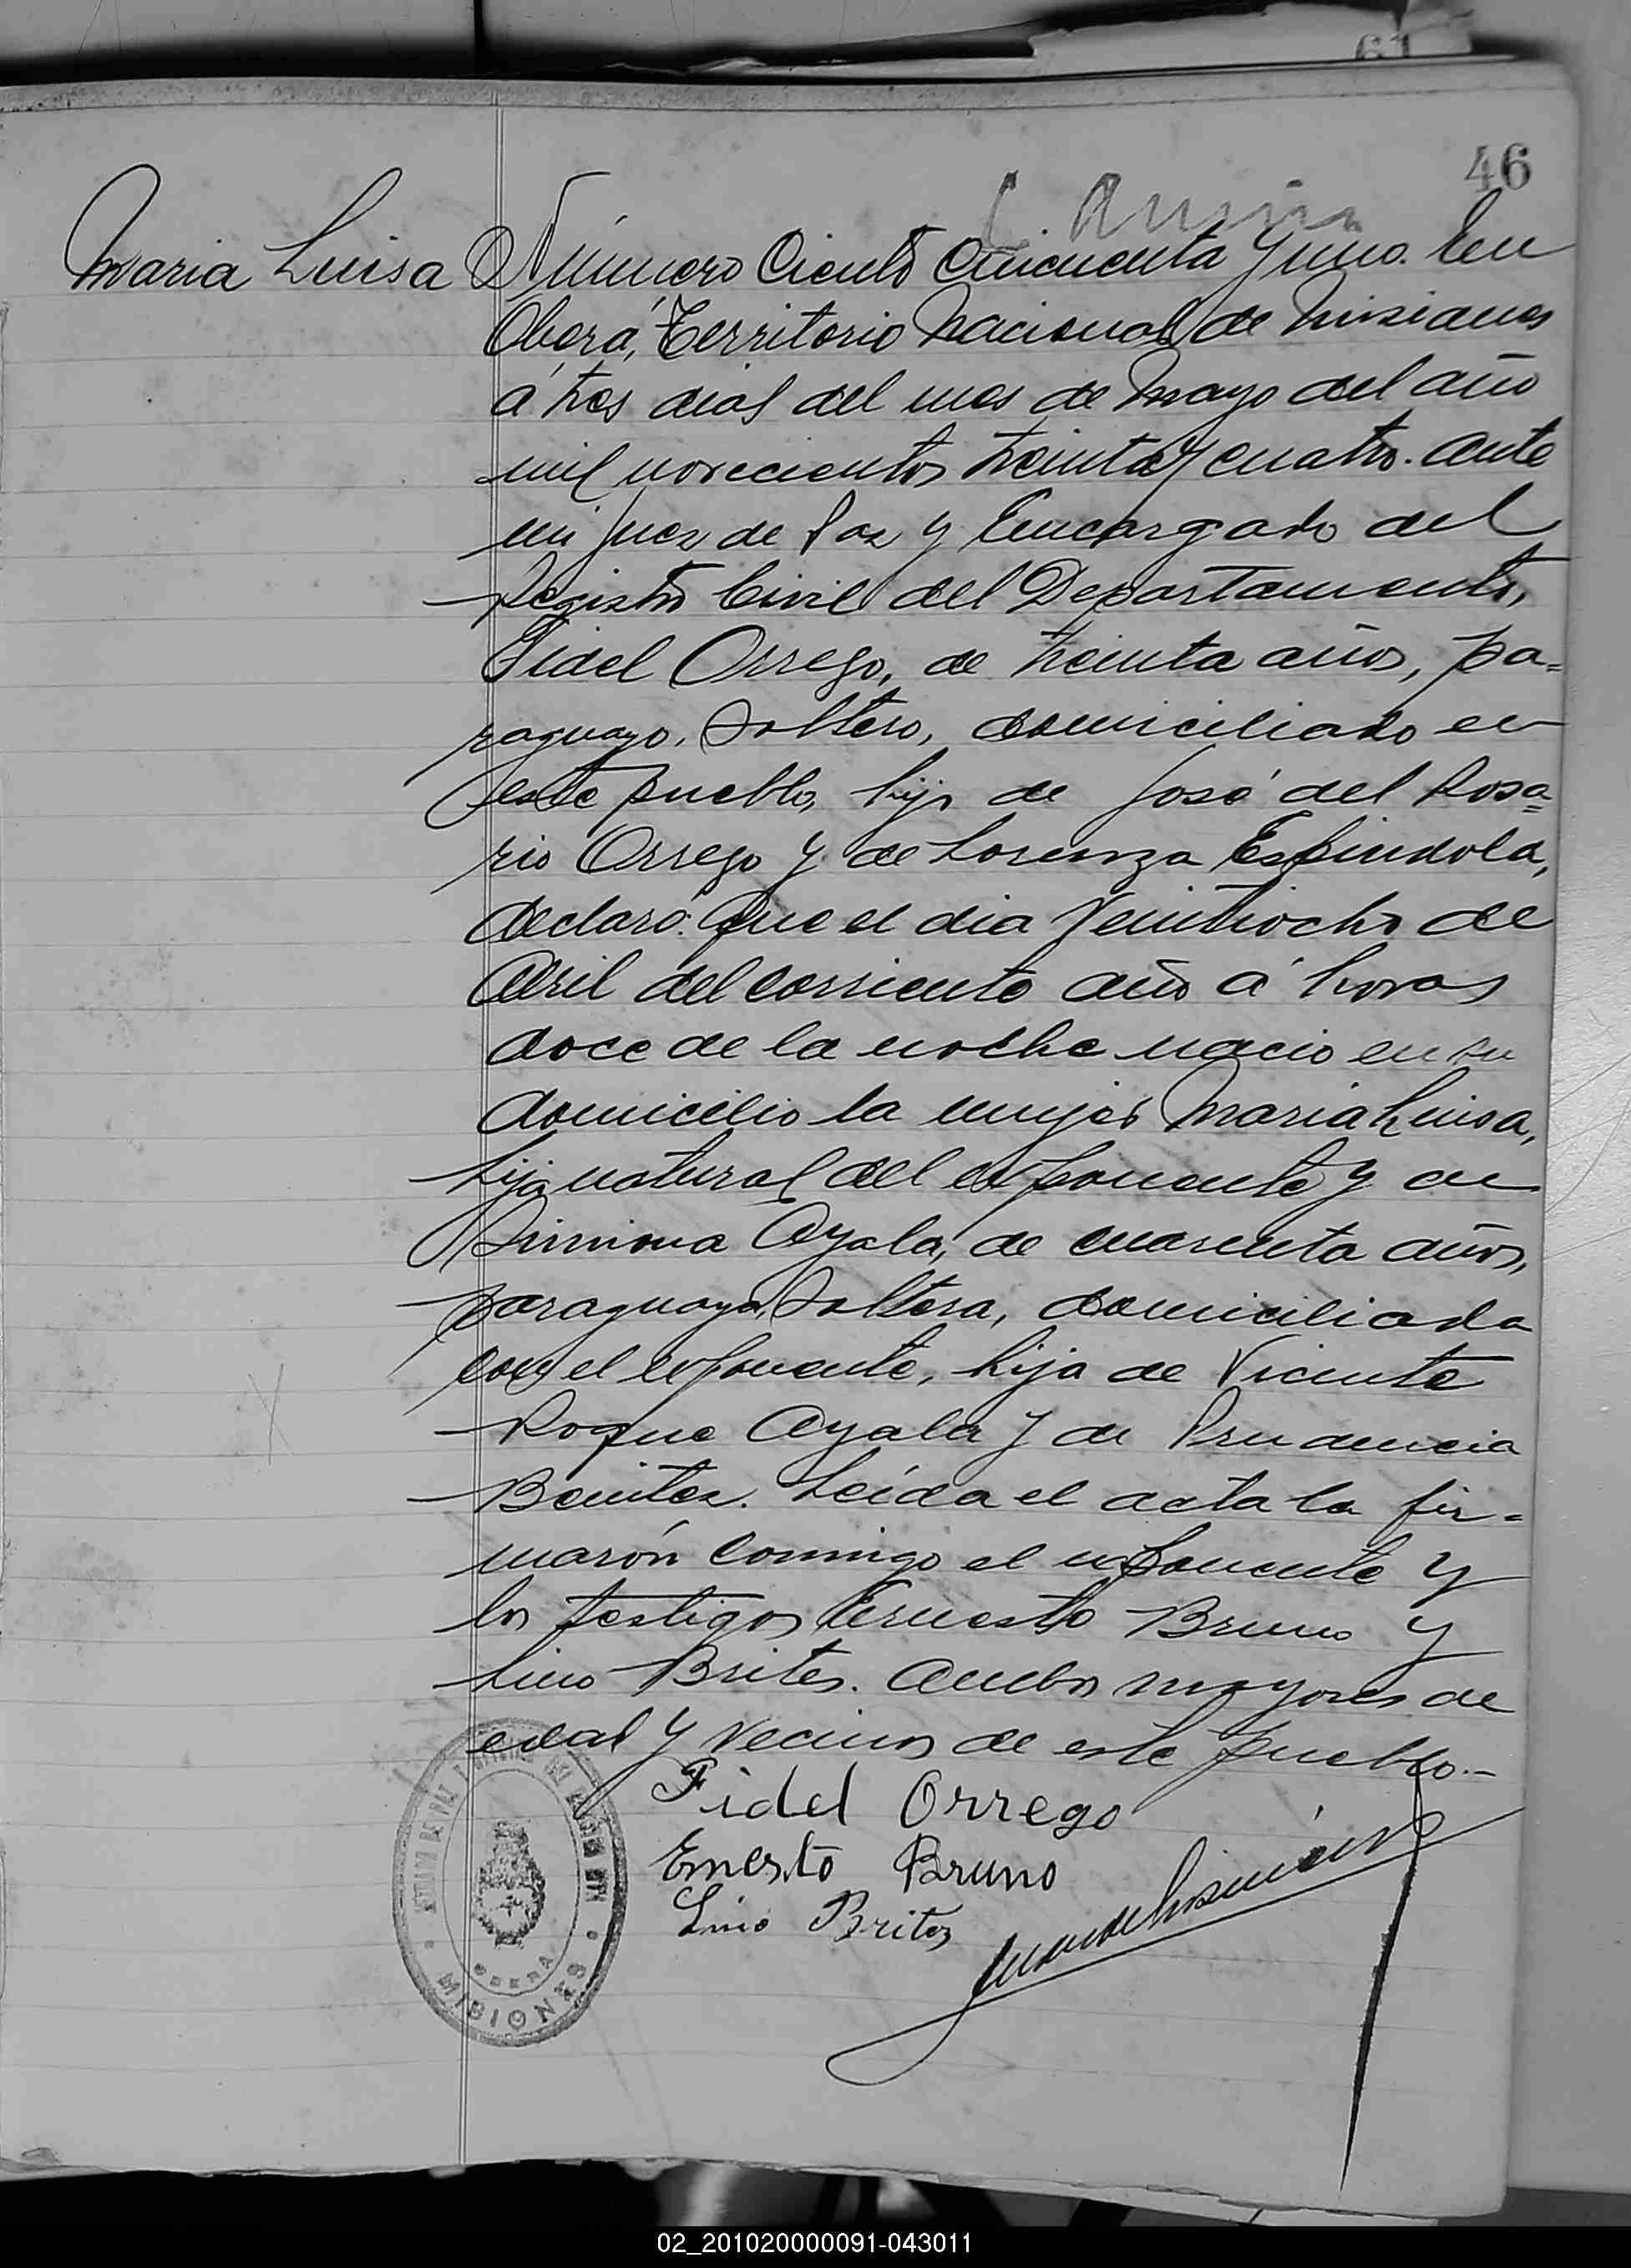 46
Maria Luisa
Número Ciento Cincuenta y uno. En
Oberá, Territorio Nacional de Misiones
á tres dias del mes de Mayo del año
mil novecientos treinta y cuatro. Ante
mi Juez de Paz y Encargado del
Registro Civil del Departamento,
Fidel Orrego, de treinta años, pa=
raguayo, Soltero, domiciliado en
este pueblo, hijo de José del Rosa=
rio Orrego y de Lorenza Espindola,
declaró: Que el dia Veintiocho de
Abril del corriente año á horas
doce de la noche nacio en su
domicilio la mujer Maria Luisa,
hija natural del exponente y de
Ayala, de cuarenta años,
paraguaya, Soltera, domiciliada
con el exponente, hija de Vicente
Roque Ayala y de Prudencia
Benitez. Leída el acta la fir=
marón conmigo el exponente y
los testigos Ernesto Bruno y
Lino Brites. Ambos mayores de
edad y vecinos de este pueblo.-
Fidel Orrego
Ernesto Bruno
Lino Britez
OBERA
MISIONES
02_201020000091-043011